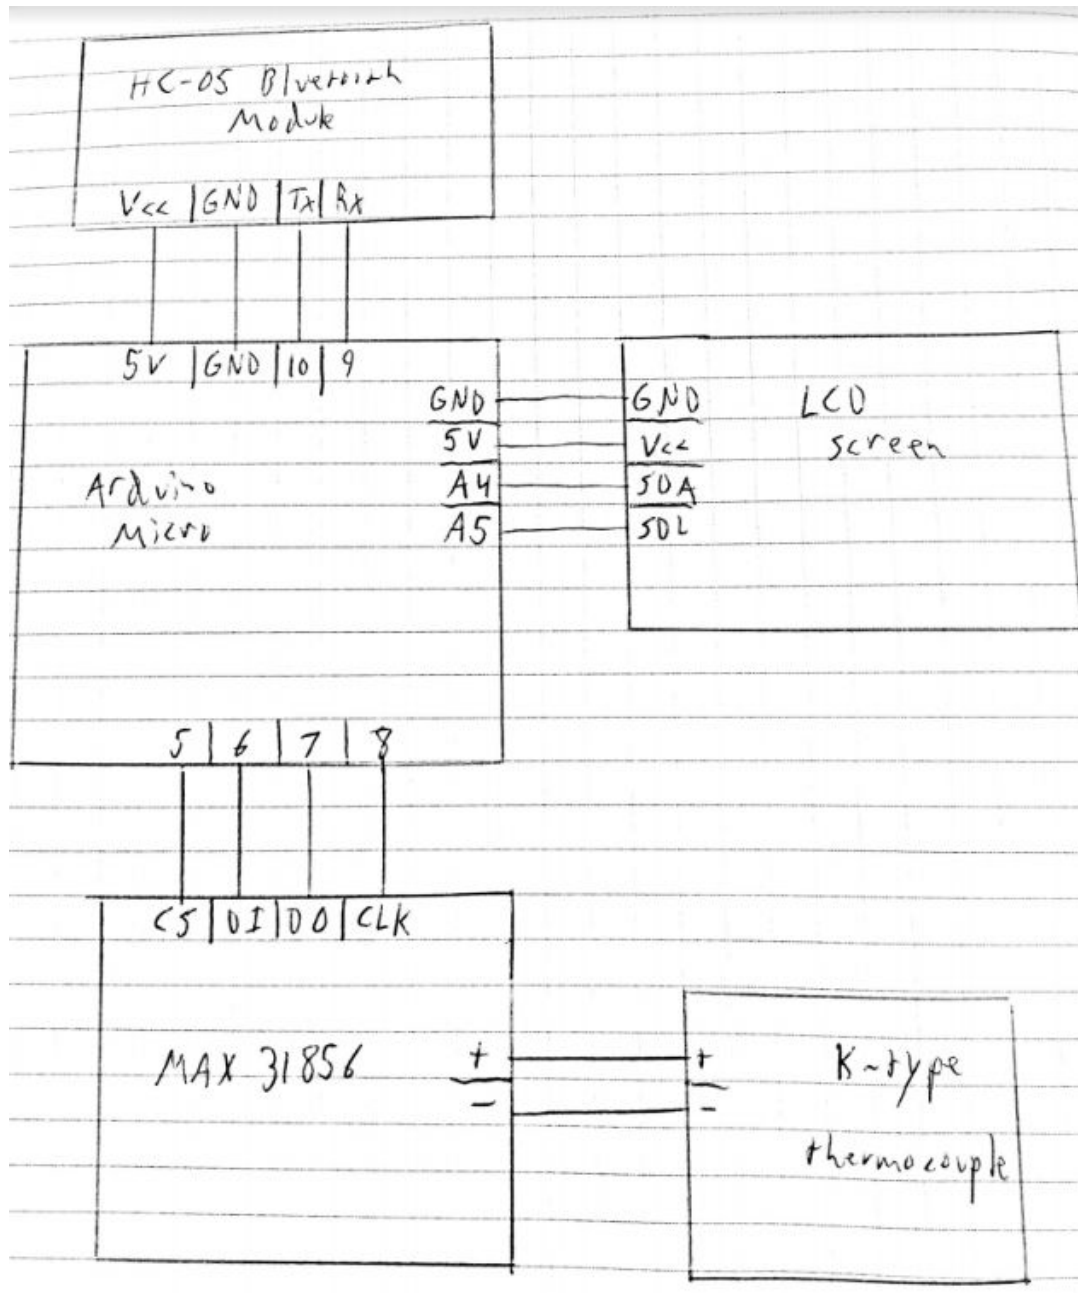 HC-05 Bluetooth
Module
Vcc | GND | Tx | Rx
5V | GND | 10 | 9
GND
5V
A4
A5
Arduino
Micro
GND
Vcc
SDA
SDL
LCD
screen
5 | 6 | 7 | 8
CS | DI | DO | CLK
MAX 31856
+
-
+
-
K-type
thermocouple